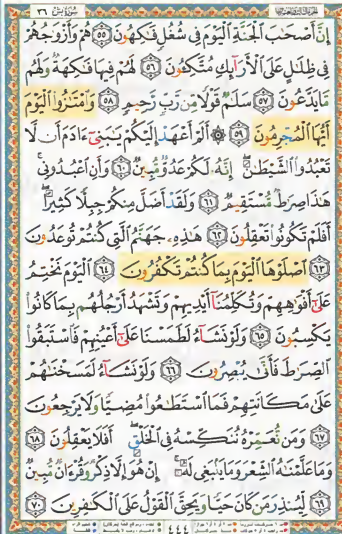 سورة يس ٣٦
إِنَّ أَصْحَٰبَ ٱلْجَنَّةِ ٱلْيَوْمَ فِى شُغُلٍ فَٰكِهُونَ ٥٥ هُمْ وَأَزْوَٰجُهُمْ
فِى ظِلَٰلٍ عَلَى ٱلْأَرَآئِكِ مُتَّكِـُٔونَ ٥٦ لَهُمْ فِيهَا فَٰكِهَةٌ وَلَهُم
مَّا يَدَّعُونَ ٥٧ سَلَٰمٌ قَوْلًا مِّن رَّبٍّ رَّحِيمٍ ٥٨ وَٱمْتَٰزُوا۟ ٱلْيَوْمَ
أَيُّهَا ٱلْمُجْرِمُونَ ٥٩ ۞ أَلَمْ أَعْهَدْ إِلَيْكُمْ يَٰبَنِىٓ ءَادَمَ أَن لَّا
تَعْبُدُوا۟ ٱلشَّيْطَٰنَ ۖ إِنَّهُۥ لَكُمْ عَدُوٌّ مُّبِينٌ ٦٠ وَأَنِ ٱعْبُدُونِى ۚ
هَٰذَا صِرَٰطٌ مُّسْتَقِيمٌ ٦١ وَلَقَدْ أَضَلَّ مِنكُمْ جِبِلًّا كَثِيرًا ۖ
أَفَلَمْ تَكُونُوا۟ تَعْقِلُونَ ٦٢ هَٰذِهِۦ جَهَنَّمُ ٱلَّتِى كُنتُمْ تُوعَدُونَ
٦٣ ٱصْلَوْهَا ٱلْيَوْمَ بِمَا كُنتُمْ تَكْفُرُونَ ٦٤ ٱلْيَوْمَ نَخْتِمُ
عَلَىٰٓ أَفْوَٰهِهِمْ وَتُكَلِّمُنَآ أَيْدِيهِمْ وَتَشْهَدُ أَرْجُلُهُم بِمَا كَانُوا۟
يَكْسِبُونَ ٦٥ وَلَوْ نَشَآءُ لَطَمَسْنَا عَلَىٰٓ أَعْيُنِهِمْ فَٱسْتَبَقُوا۟
ٱلصِّرَٰطَ فَأَنَّىٰ يُبْصِرُونَ ٦٦ وَلَوْ نَشَآءُ لَمَسَخْنَٰهُمْ
عَلَىٰ مَكَانَتِهِمْ فَمَا ٱسْتَطَٰعُوا۟ مُضِيًّا وَلَا يَرْجِعُونَ
٦٧ وَمَن نُّعَمِّرْهُ نُنَكِّسْهُ فِى ٱلْخَلْقِ ۖ أَفَلَا يَعْقِلُونَ ٦٨
وَمَا عَلَّمْنَٰهُ ٱلشِّعْرَ وَمَا يَنۢبَغِى لَهُۥٓ ۚ إِنْ هُوَ إِلَّا ذِكْرٌ وَقُرْءَانٌ مُّبِينٌ
٦٩ لِّيُنذِرَ مَن كَانَ حَيًّا وَيَحِقَّ ٱلْقَوْلُ عَلَى ٱلْكَٰفِرِينَ ٧٠
٤٤٤